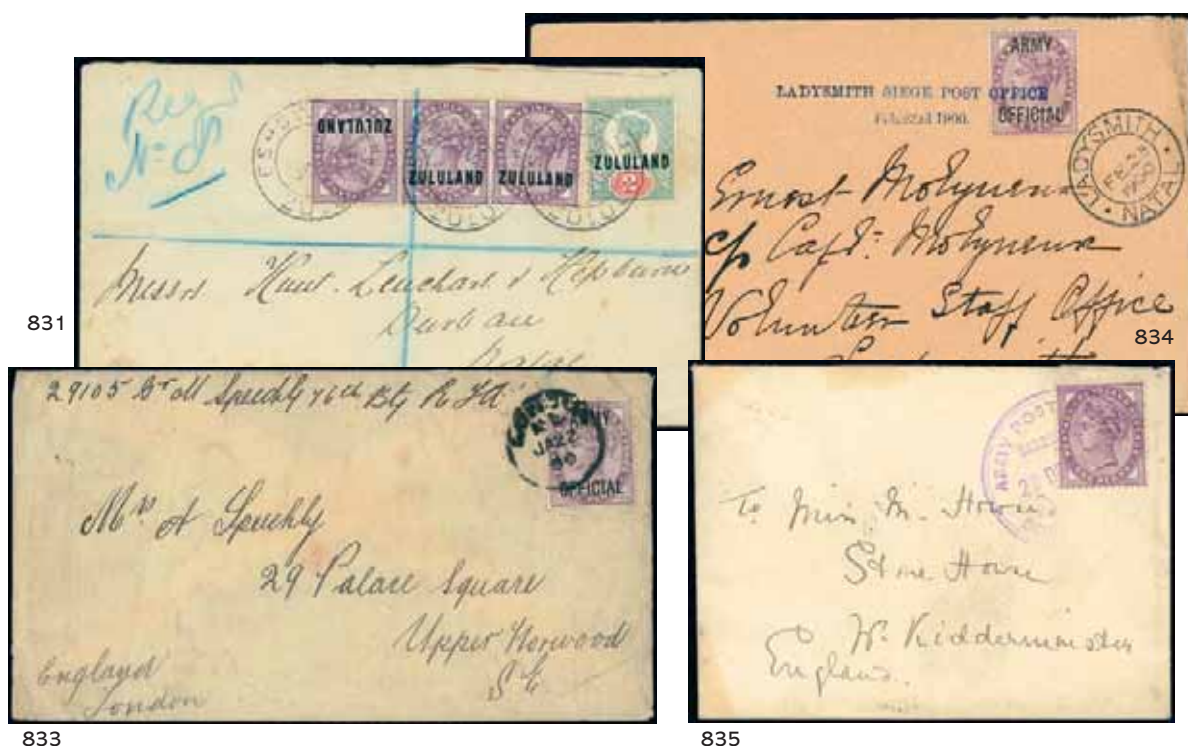 Regd
No 
ZULULAND
ZULULAND
ZULULAND
ZULULAND
ESHOWE
ZULU
ZULU
ZULU
Messrs Hunt. Leuchars & Hepburn
Durban
831
ARMY
OFFICIAL
LADYSMITH SIEGE POST OFFICE
February 1900.
LADYSMITH
FE
1900
NATAL
Ernest Molyneux
c/o Capt: Molyneux
Volunteer Staff Office
834
29105 Speechly 76th Bty R
LONDON
JA 22
OFFICIAL
Mrs A Speechly
29 Palace Square
Upper Norwood
S.E.
England
London
833
ARMY POST
To Miss M.
Stone House
Nr. Kidderminster
England.
835